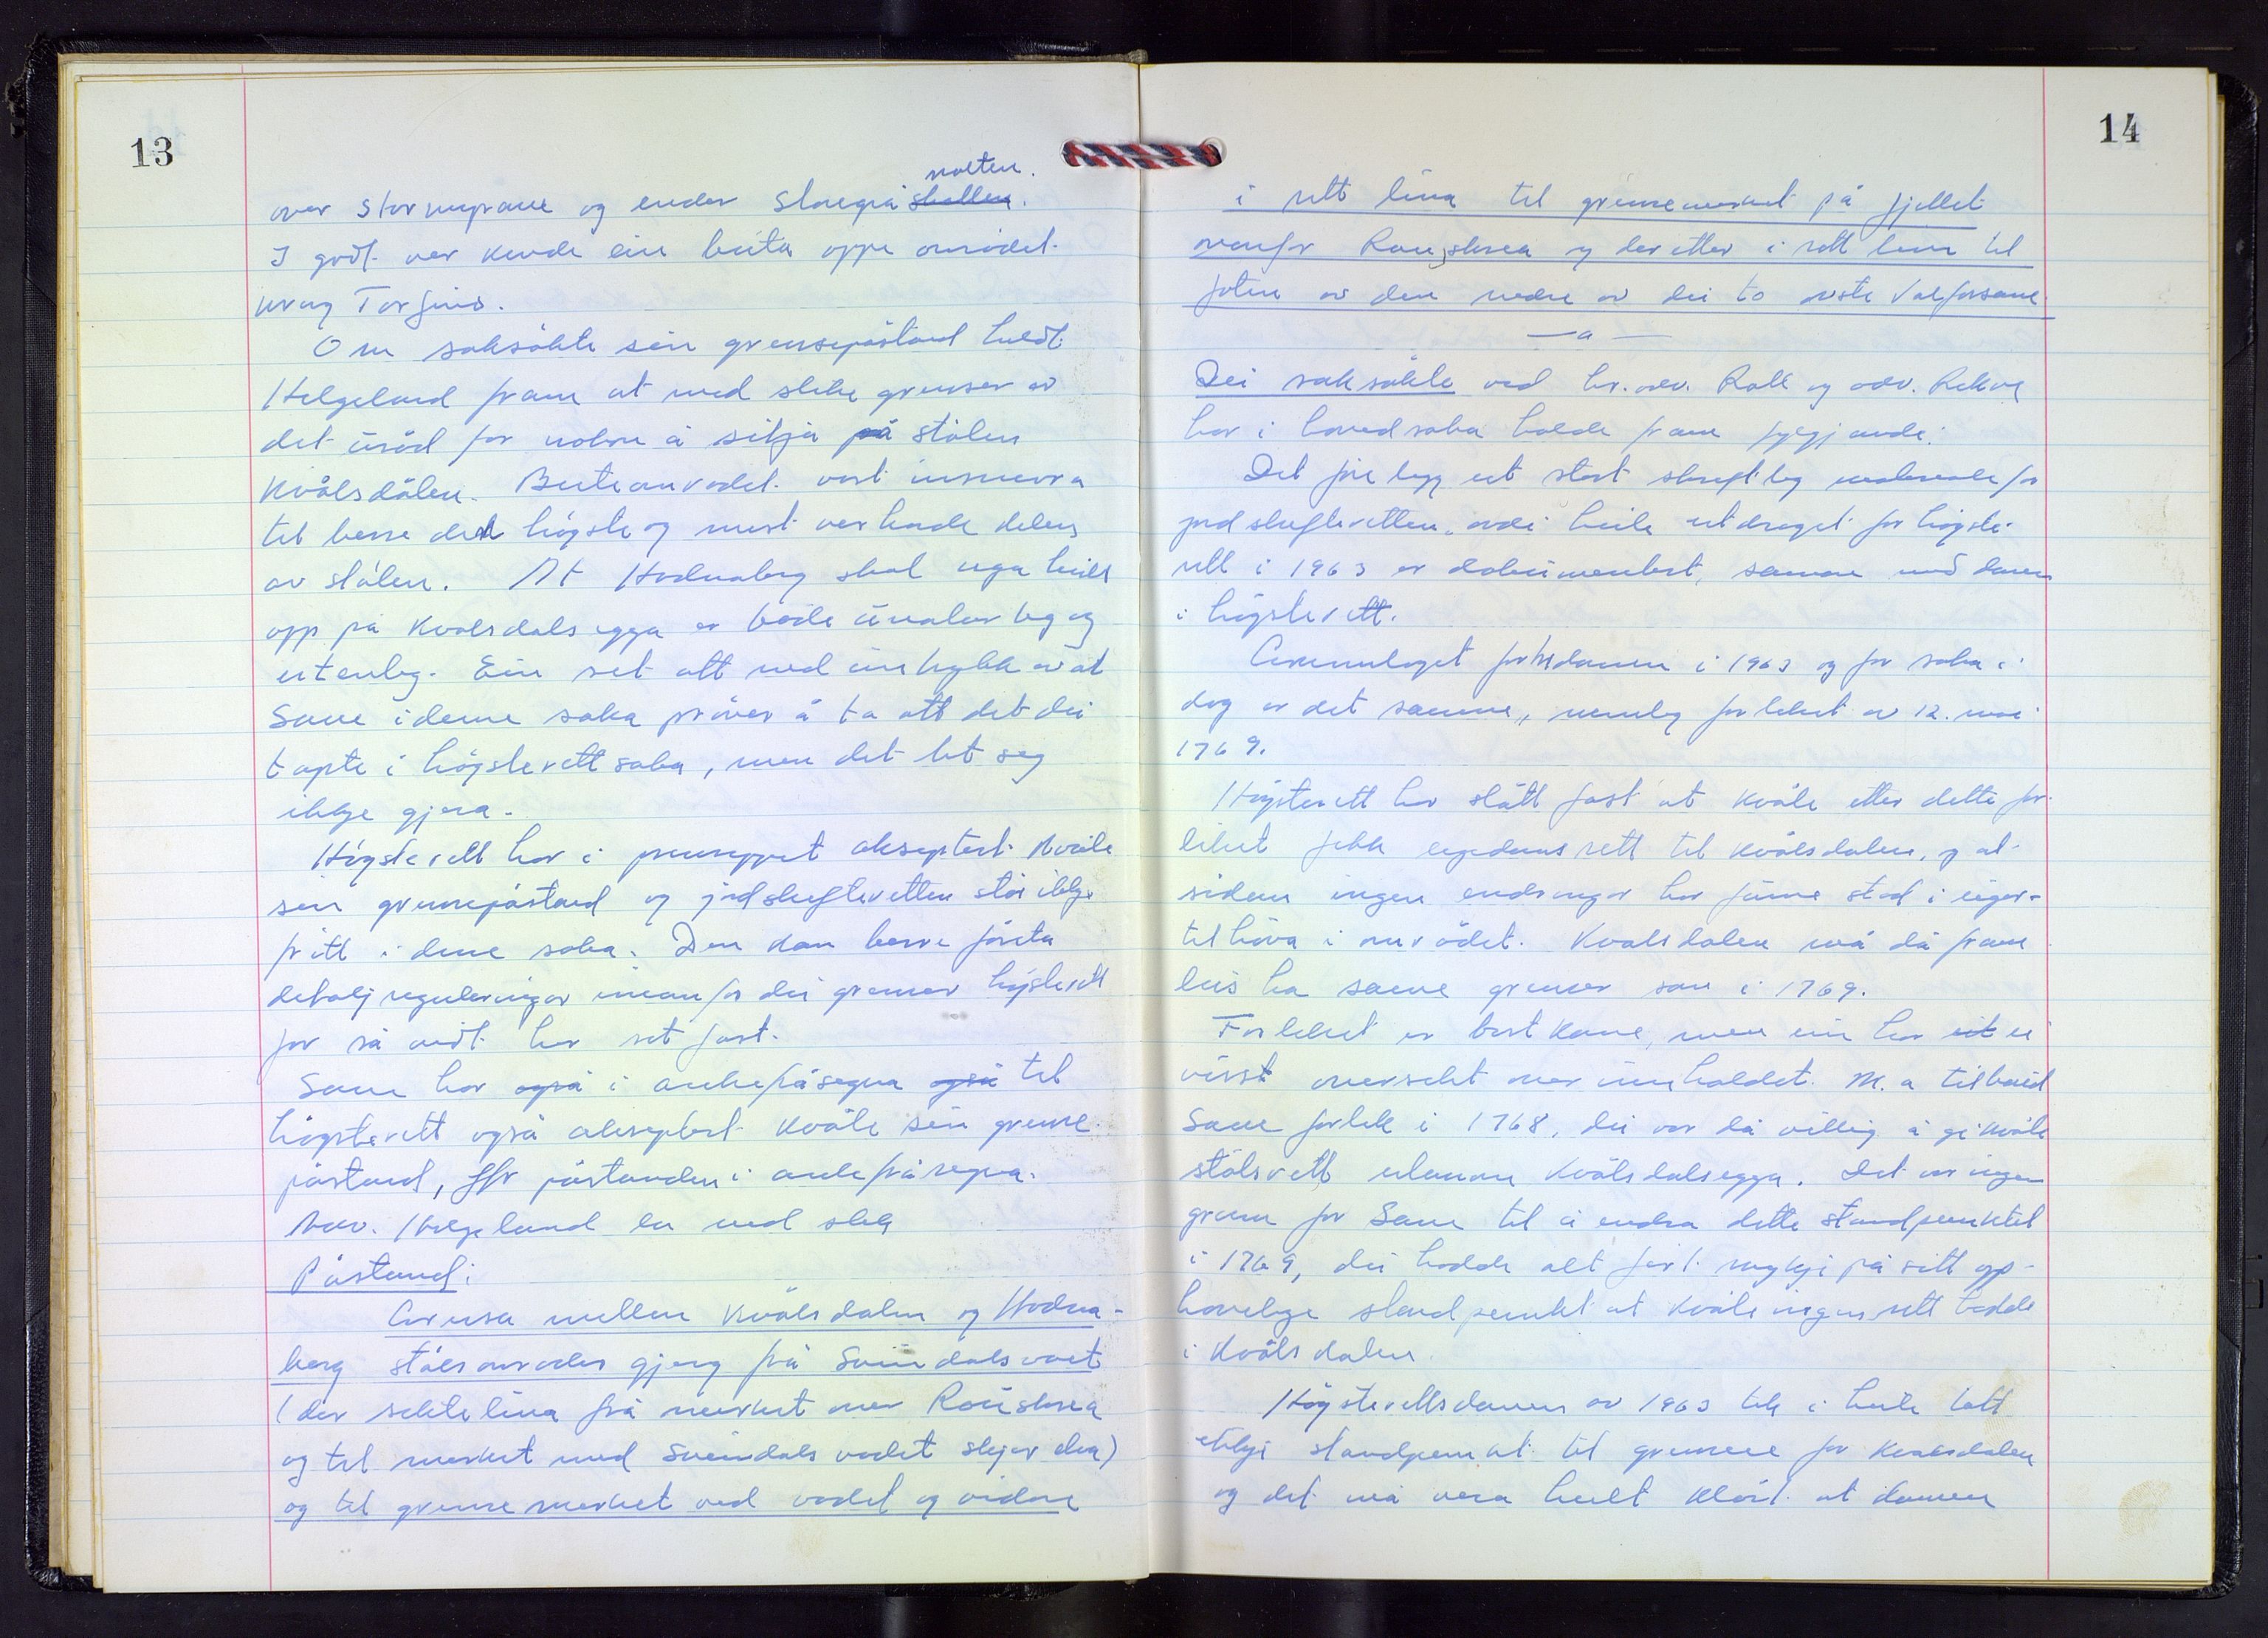 13
nolten.
over stormyrane og ender Skoregrå skallen.
I godt ver kunde ein beita oppe området
kring Torfinns.
Om saksökte sin grensepåstand heldt
Helgeland fram at med slike grenser er
det uråd for nokon å sitja på stölen
Kvålsdalen. Beiteområdet vert innsnevra
til berre det högste og mest verharde delen
av stölen. At Hodnaberg skal eiga heilt
opp på Kvålsdalsegga er både unaturleg og
utenleg. Ein set att med inntrykk av at
Saue i denne saka pröver å ta att det dei
tapte i högsterettsaka, men det let seg
ikkje gjera.
Högsterett har i prinsippet akseptert Kvåle
sin grensepåstand og jordskifteretten står ikkje
fritt i denne saka. Den kan berre företa
detaljreguleringar innanfor dei grenser högsterett
for så vidt har sett fast.
Saue har også i ankefråsegna også til
högsterett også akseptert Kvåle sin grense-
påstand, jfr påstanden i ankefråsegna.
Adv. Helgeland la ned slik
Påstand:
Grensa mellom Kvålsdalen og Hodna-
berg stölsområder gjeng frå Svindalsvatnet
(der siktelina frå merket over Rouskrea
og til merket med Svindalsvadet skjer elva)
og til grensemerket ved vadet og vidare
14
i rett lina til grensemerket på fjellet
ovanfor Rouskrea og deretter i rett line til
foten av den nedre av dei to övste Valfossane.
— a —
Dei saksökte ved h.r.adv. Rall og adv. Rekve
har i hovedsaka halde fram fylgjande:
Det föreligg eit stort skriftleg materiale for
jordskifteretten, ordi heile utdraget for högste-
rett i 1963 er dokumentert, saman med domen
i högsterett.
Grunnlaget for domen i 1963 og for saka i
dag er det samme, nemleg forliket av 12. mai
1769.
Högsterett har slått fast at Kvåle etter dette for-
liket fekk eigedomsrett til Kvålsdalen, og at
sidan ingen endringar har funne stad i eigar-
tilhöva i området. Kvålsdalen må då fram-
leis ha same grenser som i 1769.
Forliket er bortkome, men ein har eit ei
visst oversikt over innhaldet. M.a tilbaud
Saue forlik i 1768, dei var då villig å gi Kvåle
stölsrett utanom Kvålsdalsegga. Det var ingen
grunn for Saue til å endra dette standpunktet
i 1769, dei hadde alt fört mykje på sitt opp-
havelege standpunkt at Kvåle ingen rett hadde
i Kvålsdalen.
Högsterettsdomen av 1963 tek i heile tatt
ikkje standpunkt til grensene for Kvålsdalen
og det må vera heilt klårt at domen